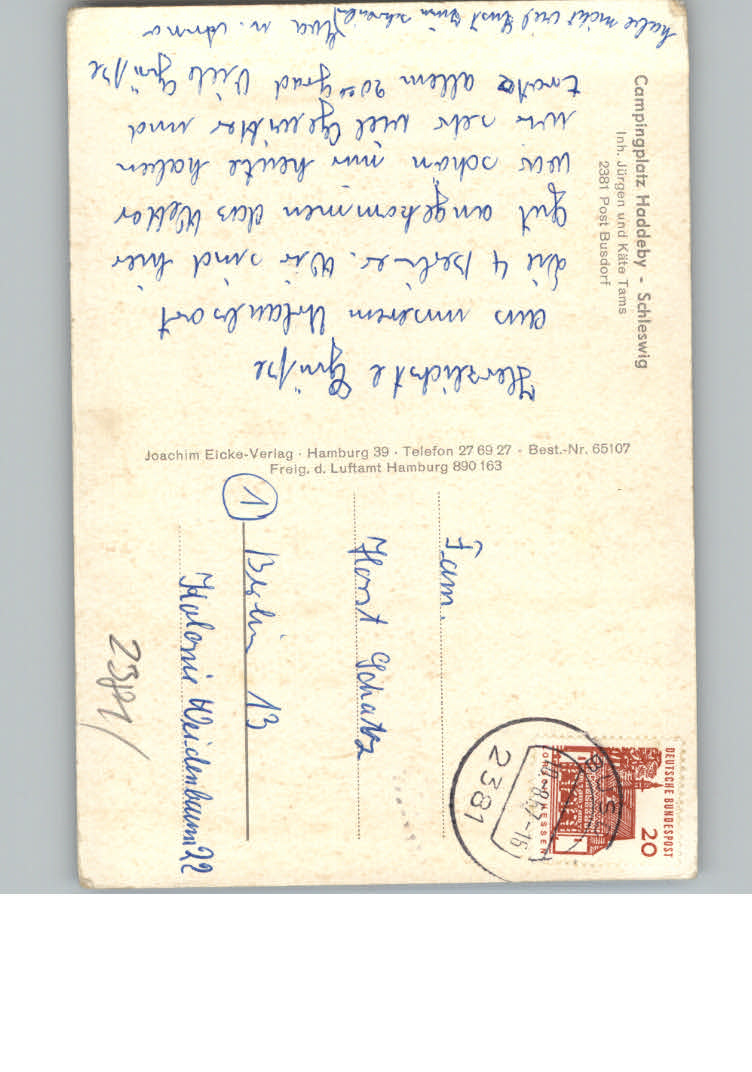 Campingplatz Haddeby - Schleswig
Inh. Jürgen und Käte Tams
2381 Post Busdorf
Herzlichste Grüße
aus unserem Urlaubsort
die 4 Berliner. Wir sind hier
gut angekommen das Wetter
war schön nur heute haben
wir sehr viel Gewitter und
trotz allem 20° Grad Viele Grüße
habe nicht viel Lust zum schreiben
Joachim Eicke-Verlag · Hamburg 39 · Telefon 27 69 27 · Best.-Nr. 65107
Freig. d. Luftamt Hamburg 890 163
DEUTSCHE BUNDESPOST
20
2381
Fam.
Horst Schatz
1 Berlin 13
Kolonie Weidenbaum 22
2381/